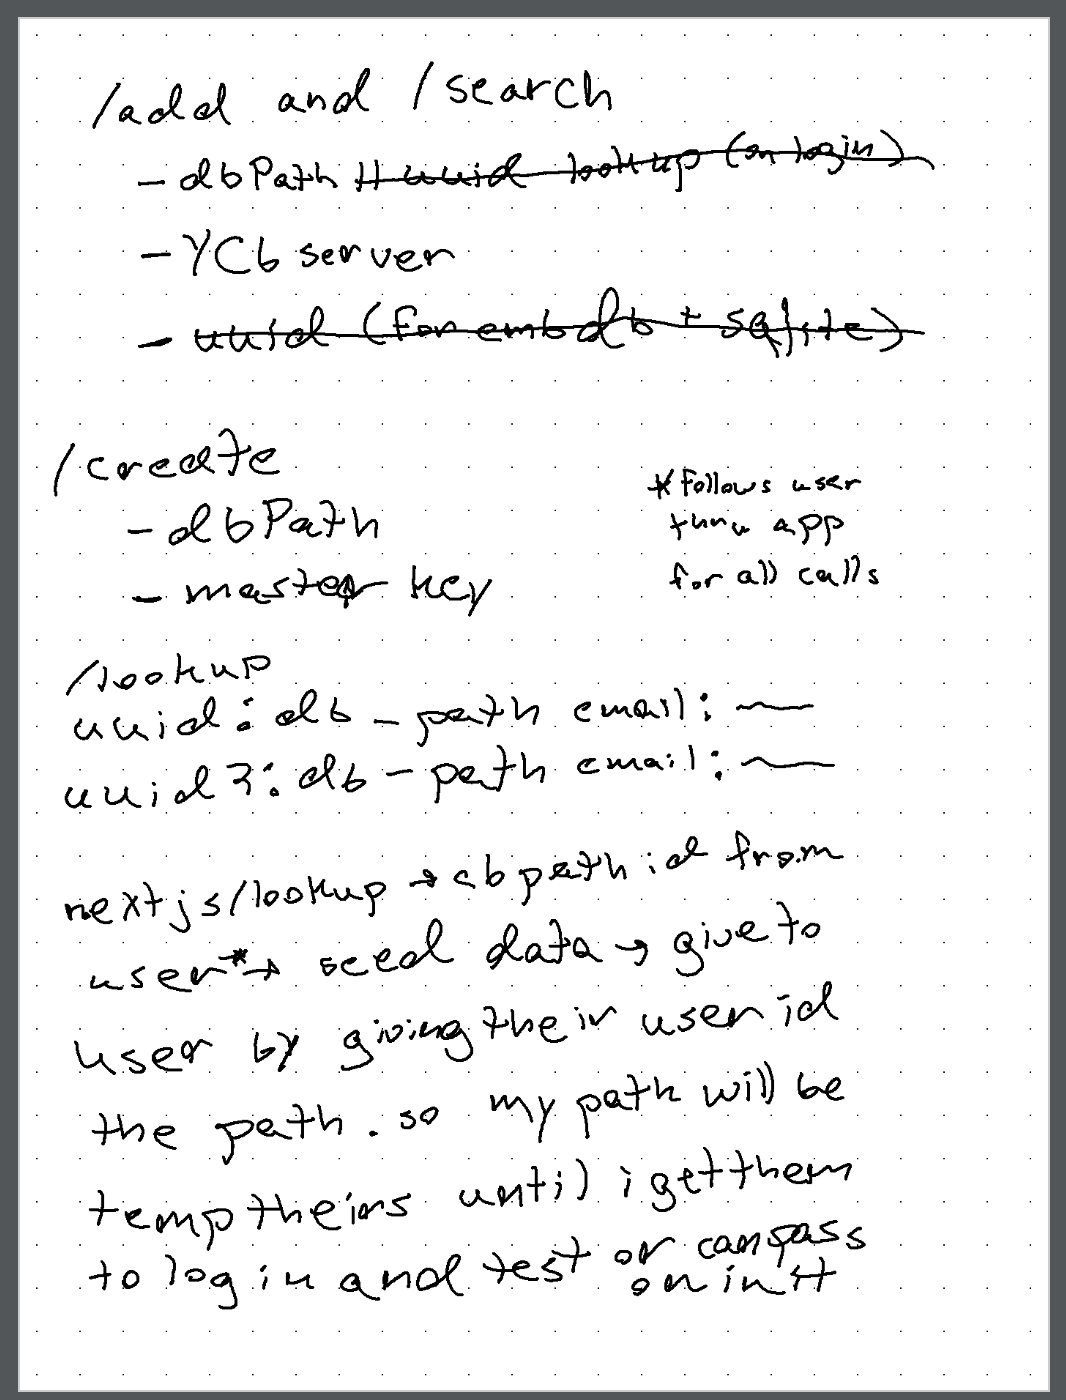 /add and /search
- dbPath # uuid lookup (on login)
- YCb server
- uuid (for emb db + sqlite)
/create
- dbPath
- master key
*follows user
thru app
for all calls
/lookup
uuid: db - path email:
uuid2: db - path email:
nextjs/lookup → db path id from
user* → seed data → give to
user by giving their user id
the path. so my path will be
temp theirs until i get them
to login and test or can pass
on init